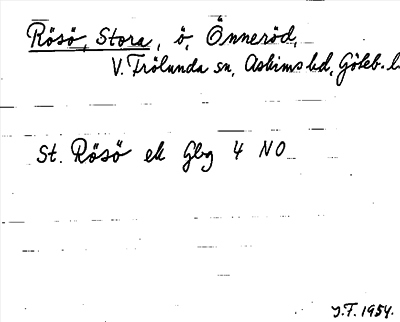 Rösö, Stora, ö, Önneröd,
V. Frölunda sn, Askims hd, Göteb. l.
St. Rösö ek Gbg 4 NO
J.F. 1954.